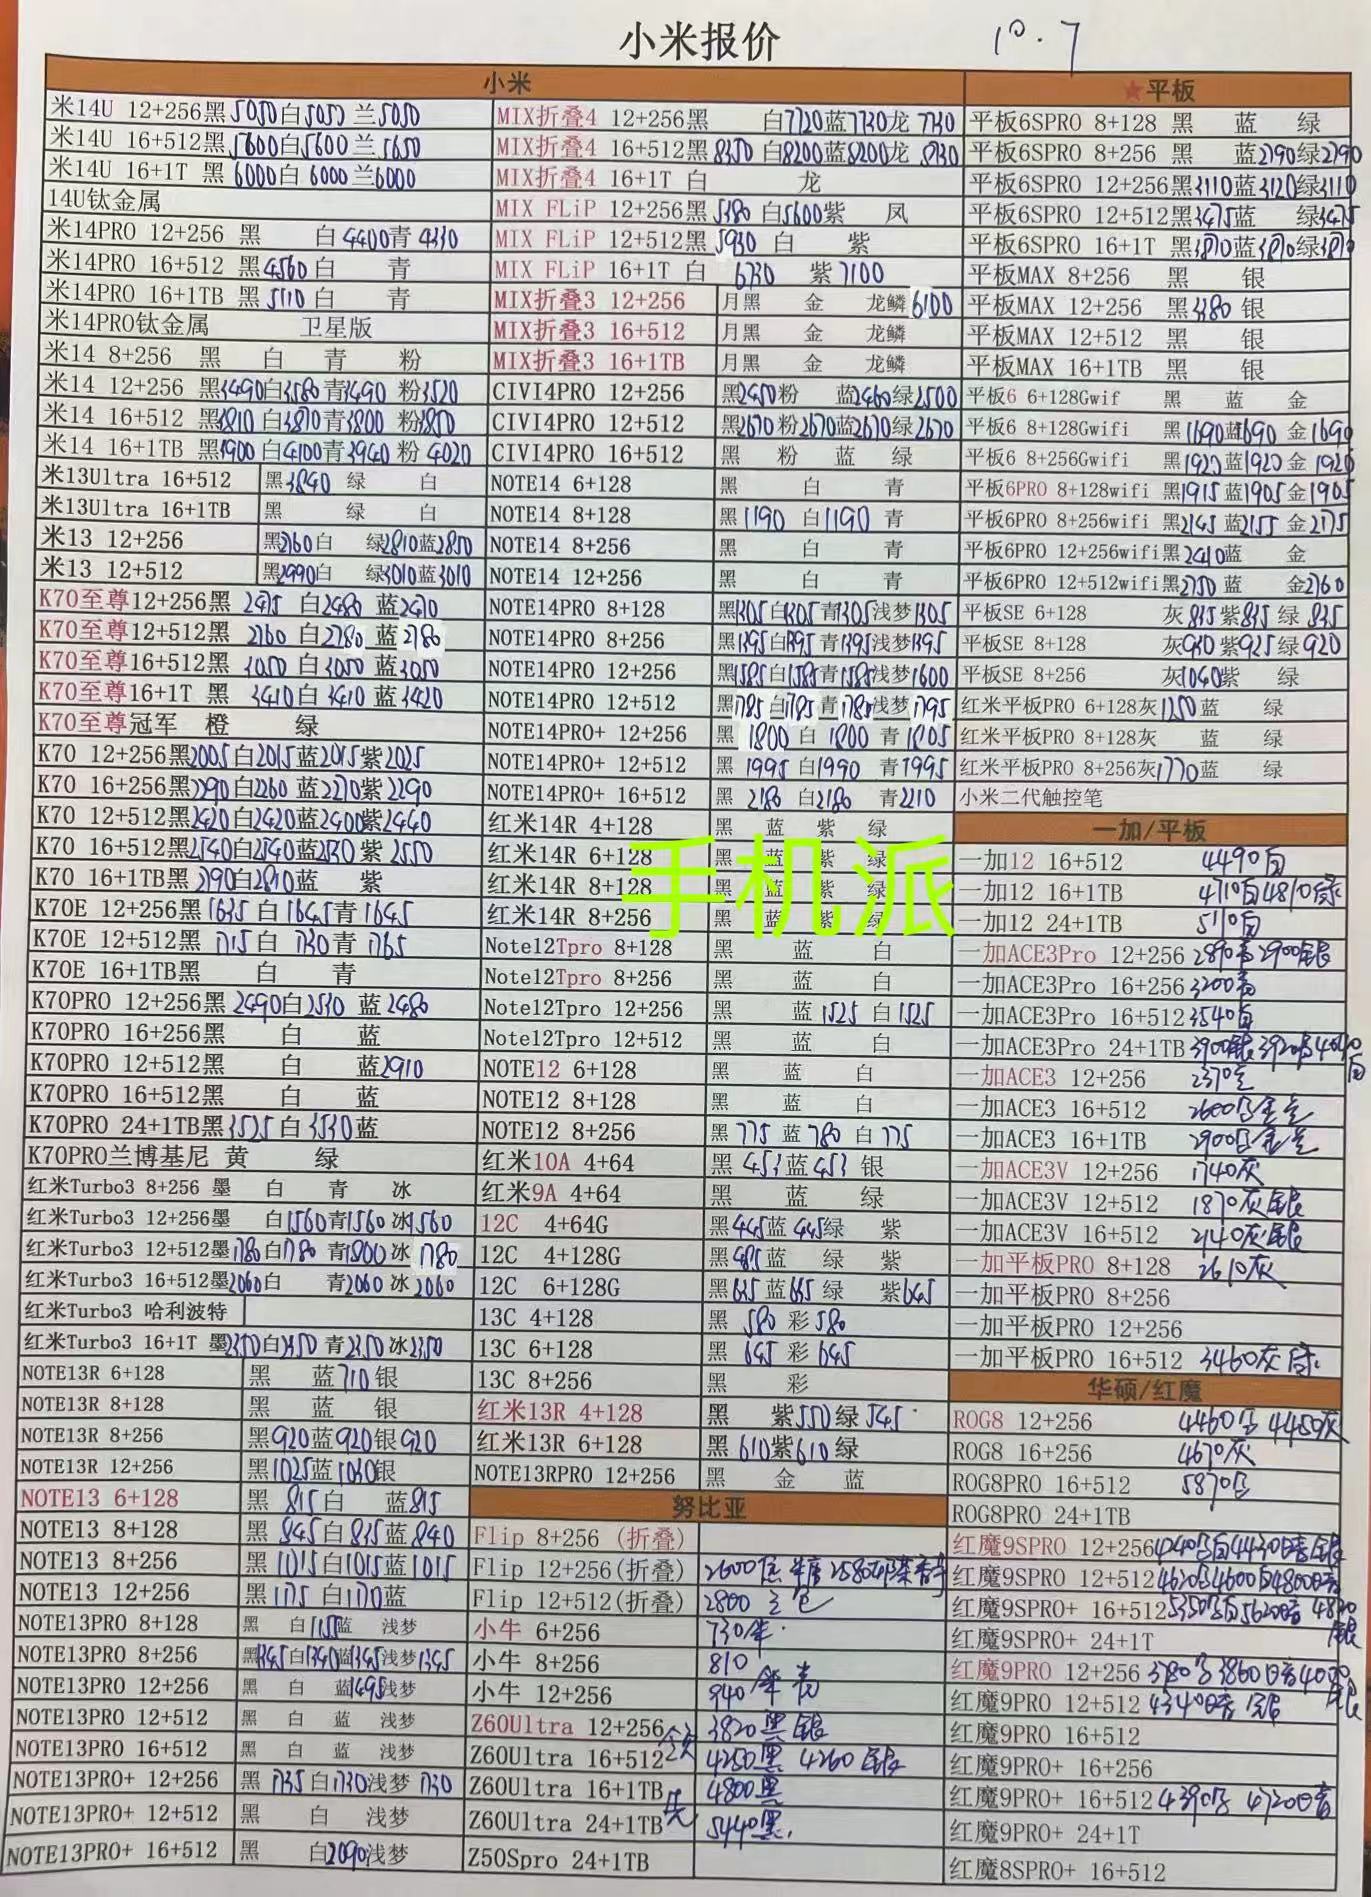 小米报价 10.7
小米
米14U 12+256黑5050白5050兰5050
米14U 16+512黑5600白5600兰5650
米14U 16+1T 黑6000白6000兰6000
14U钛金属
米14PRO 12+256 黑 白4400青4330
米14PRO 16+512 黑4560白 青
米14PRO 16+1TB 黑5110白 青
米14PRO钛金属 卫星版
米14 8+256 黑 白 青 粉
米14 12+256 黑3490白3580青3490 粉3520
米14 16+512 黑3810白3870青3800 粉3850
米14 16+1TB 黑3900白4100青3940粉4020
米13Ultra 16+512 黑3840 绿 白
米13Ultra 16+1TB 黑 绿 白
米13 12+256 黑2760白 绿2810蓝2850
米13 12+512 黑2990白 绿3010蓝3010
K70至尊12+256黑 2475 白2480 蓝2470
K70至尊12+512黑 2760 白2780 蓝2780
K70至尊16+512黑 3050 白3050 蓝3050
K70至尊16+1T 黑 3410白3410 蓝3420
K70至尊冠军 橙 绿
K70 12+256黑2005白2015蓝2015紫2025
K70 16+256黑2290白2260蓝2270紫2290
K70 12+512黑2420白2420蓝2400紫2440
K70 16+512黑2540白2540蓝2530紫2550
K70 16+1TB黑2790白2810蓝 紫
K70E 12+256黑1635白1645青1645
K70E 12+512黑1715白1730青1765
K70E 16+1TB黑 白 青
K70PRO 12+256黑2490白2510 蓝2480
K70PRO 16+256黑 白 蓝
K70PRO 12+512黑 白 蓝2910
K70PRO 16+512黑 白 蓝
K70PRO 24+1TB黑3525白3530蓝
K70PRO兰博基尼 黄 绿
红米Turbo3 8+256 墨 白 青 冰
红米Turbo3 12+256墨 白1560青1560冰1560
红米Turbo3 12+512墨1780白1780 青1800冰1780
红米Turbo3 16+512墨2060白 青2060冰2060
红米Turbo3 哈利波特
红米Turbo3 16+1T 墨2350白2350青2350冰2350
NOTE13R 6+128 黑 蓝710银
NOTE13R 8+128 黑 蓝 银
NOTE13R 8+256 黑920蓝920银920
NOTE13R 12+256 黑1025蓝1030银
NOTE13 6+128 黑 815白 蓝815
NOTE13 8+128 黑 845白835蓝840
NOTE13 8+256 黑1015白1015蓝1015
NOTE13 12+256 黑1175白1170蓝
NOTE13PRO 8+128 黑 白1155蓝 浅梦
NOTE13PRO 8+256 黑1345白1340蓝1345浅梦1345
NOTE13PRO 12+256 黑 白 蓝1495浅梦
NOTE13PRO 12+512 黑 白 蓝 浅梦
NOTE13PRO 16+512 黑 白 蓝 浅梦
NOTE13PRO+ 12+256 黑1735白1730浅梦1730
NOTE13PRO+ 12+512 黑 白 浅梦
NOTE13PRO+ 16+512 黑 白2090浅梦
MIX折叠4 12+256黑 白7720蓝7730龙7730
MIX折叠4 16+512黑8350白8200蓝8200龙8730
MIX折叠4 16+1T 白 龙
MIX FLiP 12+256黑5380白5600紫 凤
MIX FLiP 12+512黑5930 白 紫
MIX FLiP 16+1T 白 6730 紫7100
MIX折叠3 12+256 月黑 金 龙鳞6100
MIX折叠3 16+512 月黑 金 龙鳞
MIX折叠3 16+1TB 月黑 金 龙鳞
CIVI4PRO 12+256 黑2450粉 蓝2460绿2500
CIVI4PRO 12+512 黑2670粉2670蓝2670绿2670
CIVI4PRO 16+512 黑 粉 蓝 绿
NOTE14 6+128 黑 白 青
NOTE14 8+128 黑1190 白1190 青
NOTE14 8+256 黑 白 青
NOTE14 12+256 黑 白 青
NOTE14PRO 8+128 黑1305白1305青1305浅梦1305
NOTE14PRO 8+256 黑1395白1395青1395浅梦1395
NOTE14PRO 12+256 黑1585白1585青1585浅梦1600
NOTE14PRO 12+512 黑1785白1785青1785浅梦1795
NOTE14PRO+ 12+256 黑 1800 白 1800 青1805
NOTE14PRO+ 12+512 黑 1995白1990 青1995
NOTE14PRO+ 16+512 黑 2180 白2180 青2210
红米14R 4+128 黑 蓝 紫 绿
红米14R 6+128 黑 蓝 紫 绿
红米14R 8+128 黑 蓝 紫 绿
红米14R 8+256 黑 蓝 紫 绿
手机派
Note12Tpro 8+128 黑 蓝 白
Note12Tpro 8+256 黑 蓝 白
Note12Tpro 12+256 黑 蓝1525白1525
Note12Tpro 12+512 黑 蓝 白
NOTE12 6+128 黑 蓝 白
NOTE12 8+128 黑 蓝 白
NOTE12 8+256 黑 775 蓝 780 白775
红米10A 4+64 黑 453蓝453 银
红米9A 4+64 黑 蓝 绿
12C 4+64G 黑445蓝445绿 紫
12C 4+128G 黑485蓝 绿 紫
12C 6+128G 黑635蓝635绿 紫645
13C 4+128 黑 580 彩580
13C 6+128 黑 645 彩645
13C 8+256 黑 彩
红米13R 4+128 黑 紫550绿545
红米13R 6+128 黑610紫610绿
NOTE13RPRO 12+256 黑 金 蓝
努比亚
Flip 8+256 (折叠)
Flip 12+256(折叠) 2600
Flip 12+512(折叠) 2800
小牛 6+256 730
小牛 8+256 810
小牛 12+256 940
Z60Ultra 12+256 3820黑银
Z60Ultra 16+512 4250黑 4260银
Z60Ultra 16+1TB 4800黑
Z60Ultra 24+1TB 5440黑
Z50Spro 24+1TB
★平板
平板6SPRO 8+128 黑 蓝 绿
平板6SPRO 8+256 黑 蓝2790绿2790
平板6SPRO 12+256黑3110蓝3120绿3110
平板6SPRO 12+512黑3475蓝 绿3475
平板6SPRO 16+1T 黑3870蓝3870绿3870
平板MAX 8+256 黑 银
平板MAX 12+256 黑3380 银
平板MAX 12+512 黑 银
平板MAX 16+1TB 黑 银
平板6 6+128Gwif 黑 蓝 金
平板6 8+128Gwifi 黑1690蓝1690 金1690
平板6 8+256Gwifi 黑1920蓝1920 金1920
平板6PRO 8+128wifi 黑1915蓝1905金1905
平板6PRO 8+256wifi 黑2145蓝2155 金2175
平板6PRO 12+256wifi黑2410蓝 金
平板6PRO 12+512wifi黑2750 蓝 金2760
平板SE 6+128 灰835紫835绿 835
平板SE 8+128 灰930紫925绿920
平板SE 8+256 灰1040紫 绿
红米平板PRO 6+128灰1250蓝 绿
红米平板PRO 8+128灰 蓝 绿
红米平板PRO 8+256灰1770蓝 绿
小米二代触控笔
一加/平板
一加12 16+512 4490白
一加12 16+1TB 4710白4810绿
一加12 24+1TB 5110白
一加ACE3Pro 12+256 2890青2900银
一加ACE3Pro 16+256 3200青
一加ACE3Pro 16+512 3540白
一加ACE3Pro 24+1TB 3900银 3920青4040白
一加ACE3 12+256 2370
一加ACE3 16+512 2600
一加ACE3 16+1TB 2900
一加ACE3V 12+256 1740灰
一加ACE3V 12+512 1870灰银
一加ACE3V 16+512 2140灰银
一加平板PRO 8+128 2610灰
一加平板PRO 8+256
一加平板PRO 12+256
一加平板PRO 16+512 3460灰绿
华硕/红魔
ROG8 12+256 4460 4450灰
ROG8 16+256 4670灰
ROG8PRO 16+512 5870
ROG8PRO 24+1TB
红魔9SPRO 12+256
红魔9SPRO 12+512
红魔9SPRO+ 16+512
红魔9SPRO+ 24+1T
红魔9PRO 12+256
红魔9PRO 12+512 4340
红魔9PRO 16+512
红魔9PRO+ 16+256
红魔9PRO+ 16+512 4390 4720
红魔9PRO+ 24+1T
红魔8SPRO+ 16+512